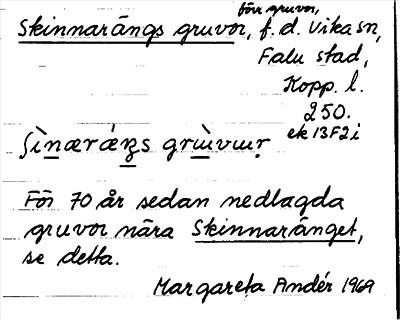 förr gruvor,
Skinnarängs gruvor, f.d. Vika sn,
Falu stad,
Kopp. l.
250.
ek 13F2i
gruvor
För 70 år sedan nedlagda
gruvor nära Skinnaränget,
se detta.
Margareta Andér 1969